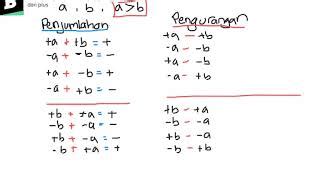 dan plus
a , b , a>b
Penjumlahan
+a + +b = +
-a + -b = -
+a + -b = +
-a + +b = -
+b + +a = +
-b + -a = -
+b + -a = -
-b + +a = +
Pengurangan
+a - +b
-a - -b
+a - -b
-a - +b
+b - +a
-b - -a
+b - -a
-b - +b